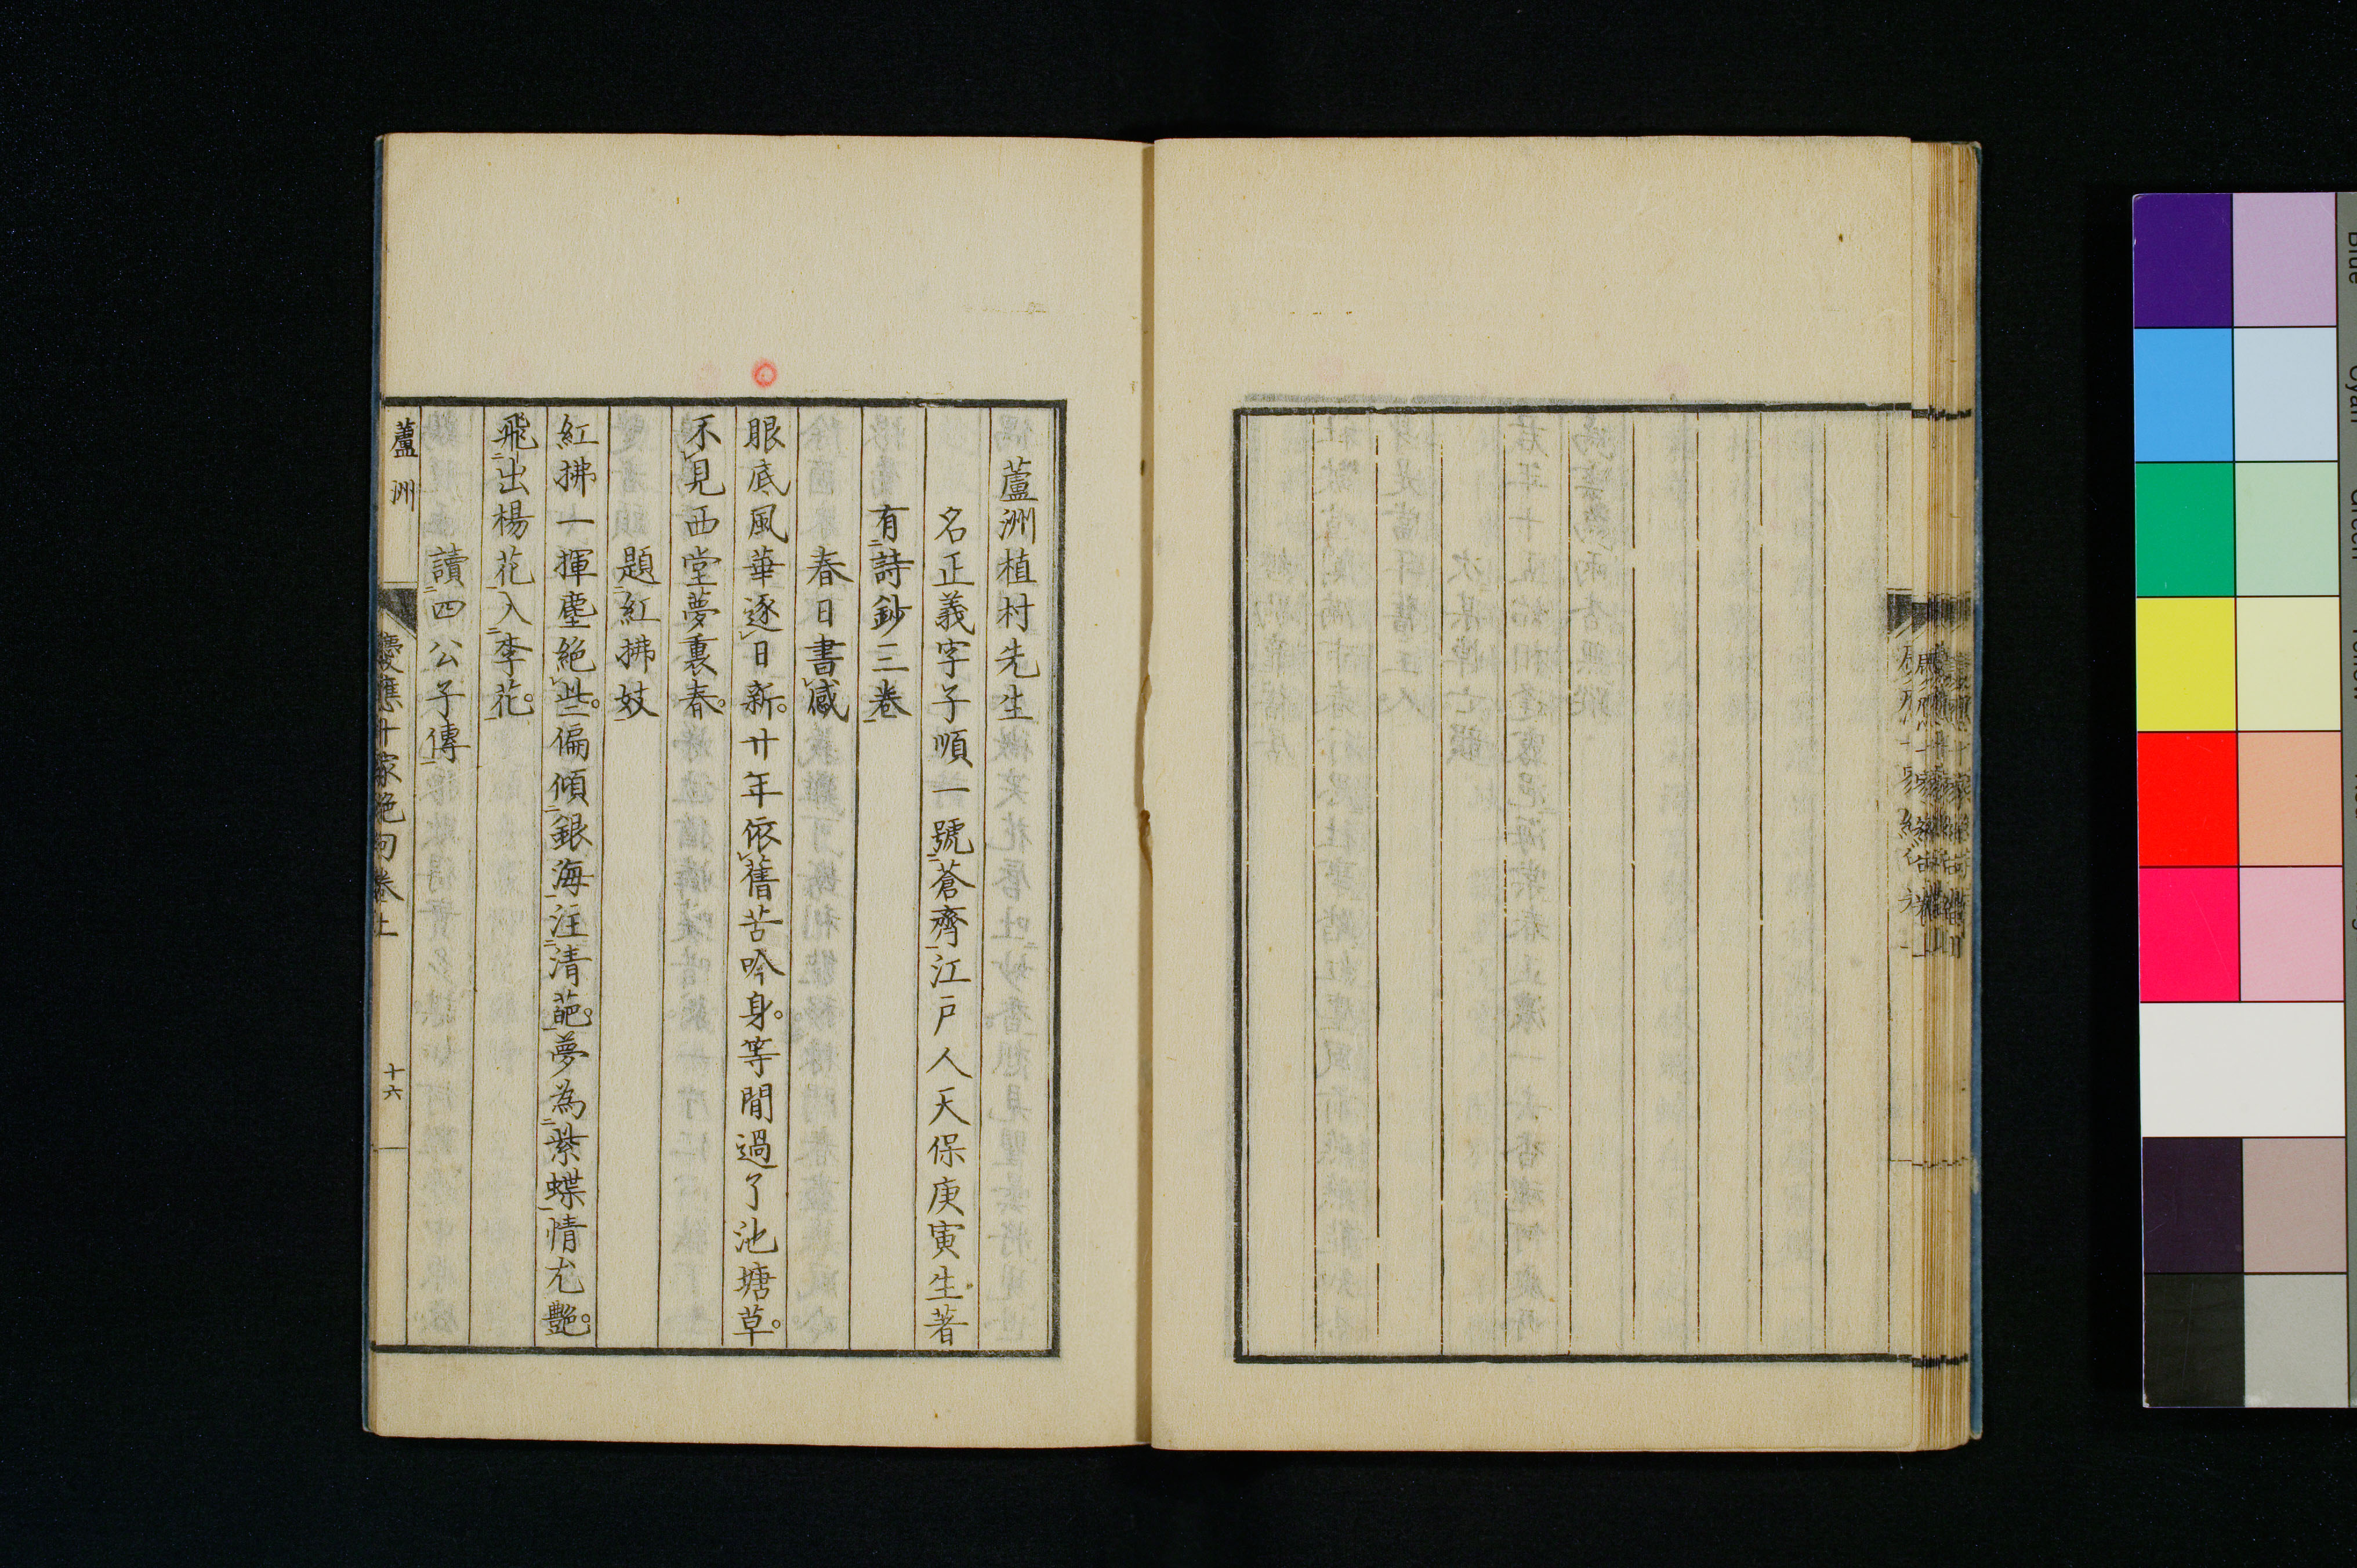 蘆洲植村先生
名正義字子順一號蒼齊江戸人天保庚寅生著
有詩鈔三卷
春日書感
眼底風華逐日新。廿年依舊苦吟身。等閒過了池塘草。
不見西堂夢裏春。
題紅拂妓
紅拂一揮塵絕些。偏傾銀海注清葩。夢為紫蝶情尤艷。
飛出楊花入李花。
讀四公子傳
蘆洲
慶應十家絶句卷上
十六